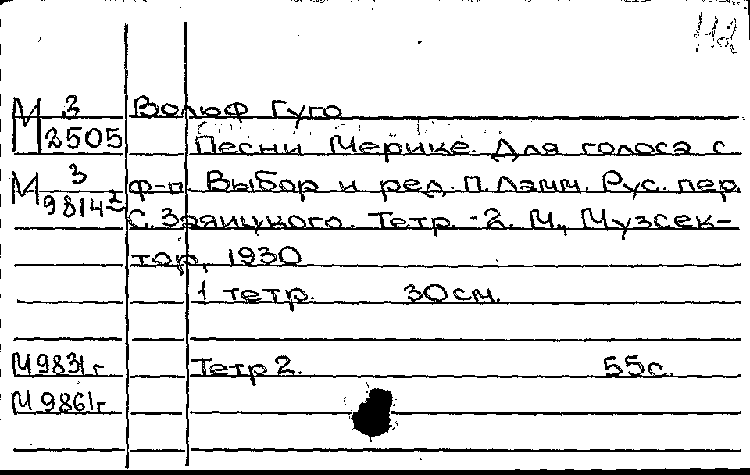 112
М 3 Вольф Гуго
2505 Песни Мерике. Для голоса с
М 3 ф-п. Выбор и ред. П. Ламм. Рус. пер.
9814 2 С. Заяицкого. Тетр. - 2. М., Музсек-
тор, 1930
1 тетр. 30 см.
М 9831 г Тетр 2. 55 с.
М 9861 г